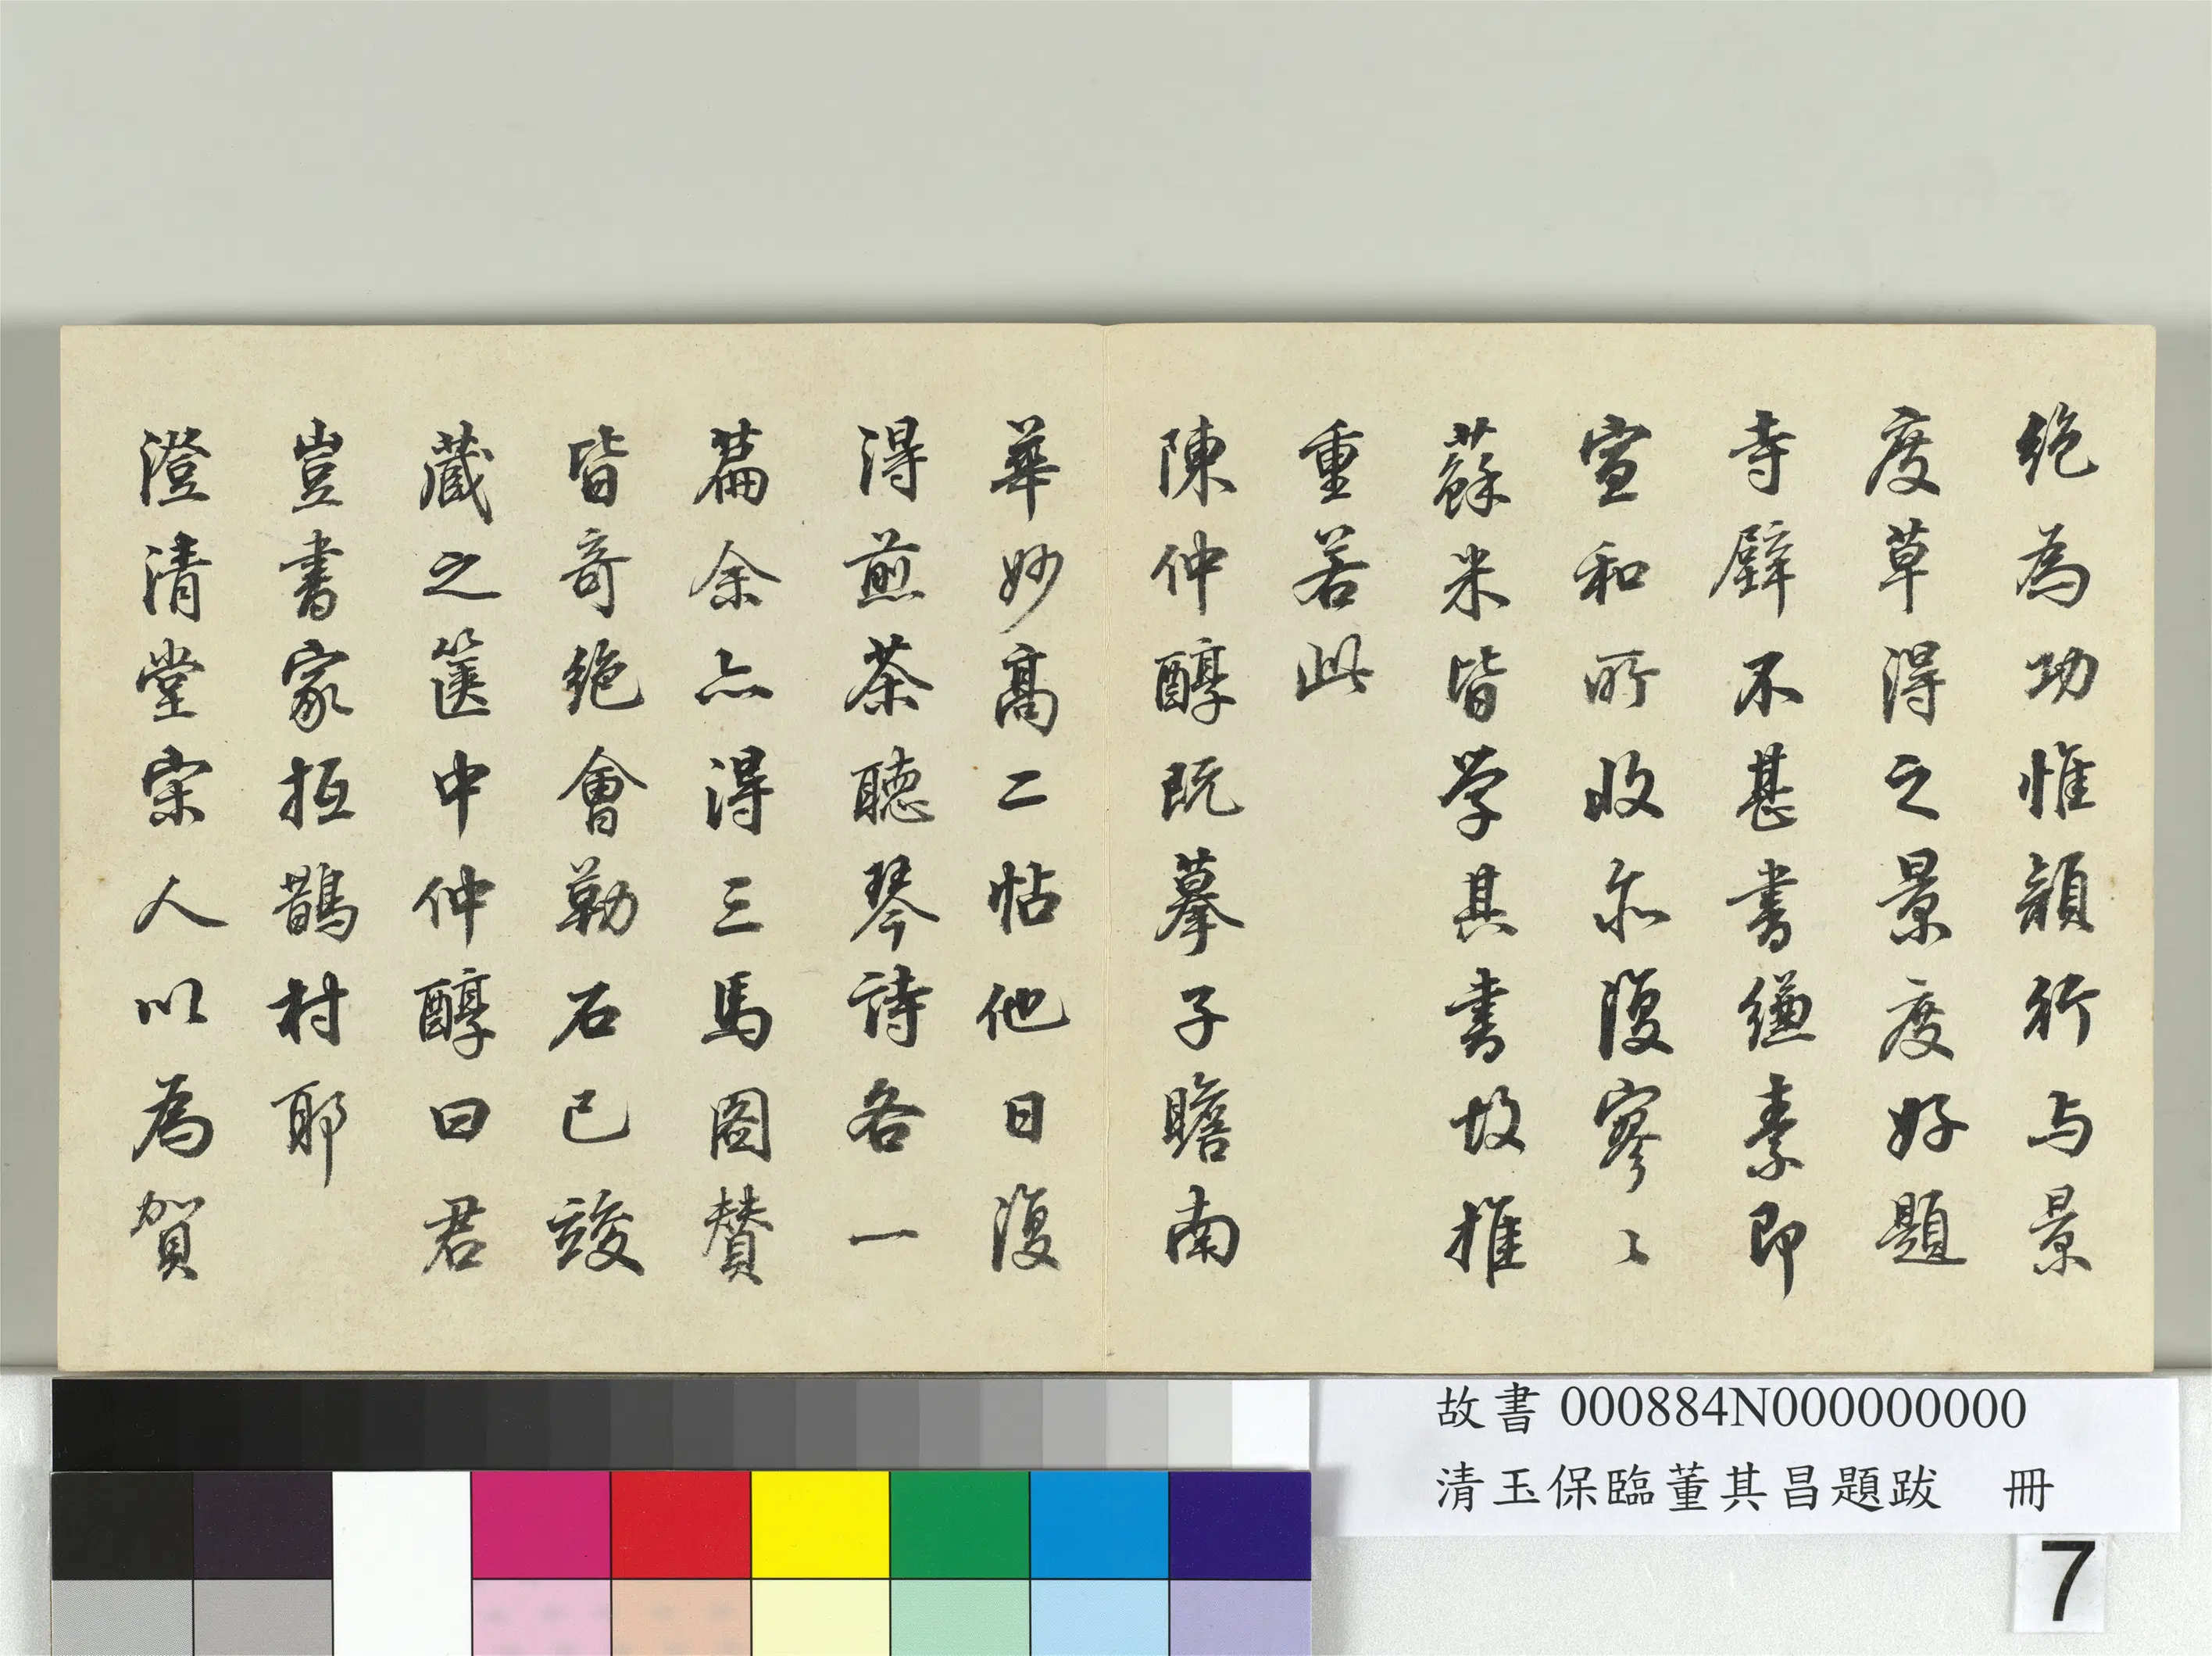 絶為功惟顏行与景
度草得之景度好題
寺壁不甚書縑素即
宣和所收亦復寥〻
蘇米皆学其書故推
重若此
陳仲醇既摹子瞻南
華妙高二帖他日復
得煎茶聽琴詩各一
篇余亦得三馬圖贊
皆奇絶會勒石已竣
藏之篋中仲醇曰君
豈書家抵鵲村耶
澄清堂宋人以為賀
故書 000884N000000000
清玉保臨董其昌題跋 冊
7